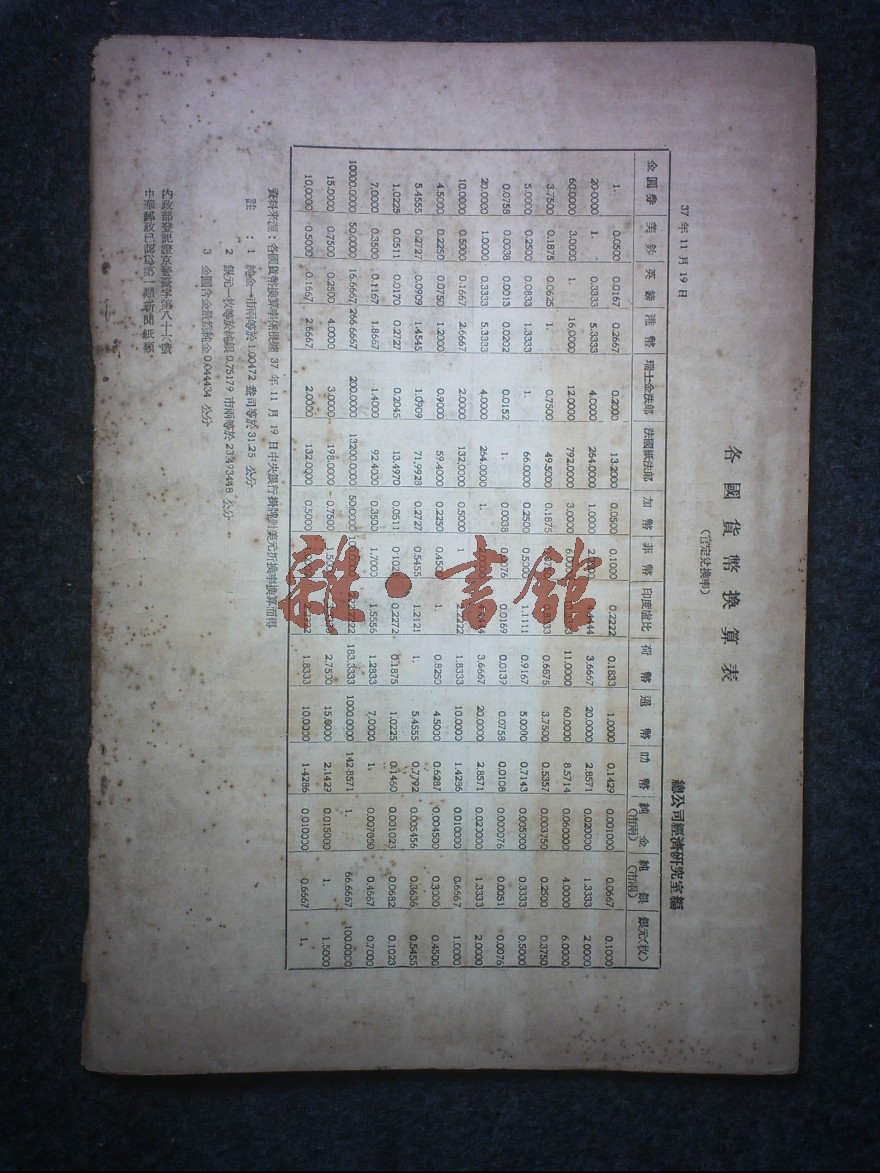 各國貨幣換算表
(官定兌換率)
37 年 11 月 19 日 總公司經濟研究室編
金圓券 美鈔 英鎊 港幣 瑞士金法郎 法國紙法郎 加幣 菲幣 印度盧比 荷幣 暹幣 叻幣 純金(市兩) 純銀(市兩) 銀元(枚)
1. 0.0500 0.0167 0.2667 0.2000 13.2000 0.0500 0.1000 0.2222 0.1833 1.0000 0.1429 0.001000 0.0667 0.1000
20.0000 1. 0.3333 5.3333 4.0000 264.0000 1.0000 3.6667 20.0000 2.8571 0.020000 1.3333 2.0000
60.0000 3.0000 1. 16.0000 12.0000 792.0000 3.0000 11.0000 60.0000 8.5714 0.060000 4.0000 6.0000
3.7500 0.1875 0.0625 1. 0.7500 49.5000 0.1875 0.6875 3.7500 0.5357 0.003750 0.2500 0.3750
5.0000 0.2500 0.0833 1.3333 1. 66.0000 0.2500 0.5000 1.1111 0.9167 5.0000 0.7143 0.005000 0.3333 0.5000
0.0758 0.0038 0.0013 0.0202 0.0152 1. 0.0038 0.0169 0.0139 0.0758 0.0108 0.000076 0.0051 0.0076
20.0000 1.0000 0.3333 5.3333 4.0000 264.0000 1. 3.6667 20.0000 2.8571 0.020000 1.3333 2.0000
10.0000 0.5000 0.1667 2.6667 2.0000 132.0000 0.5000 1 2.2222 1.8333 10.0000 1.4286 0.010000 0.6667 1.0000
4.5000 0.2250 0.0750 1.2000 0.9000 59.4000 0.2250 1. 0.8250 4.5000 0.6287 0.004500 0.3000 0.4500
5.4555 0.2727 0.0909 1.4545 1.0909 71.9928 0.2727 0.5455 1.2121 1. 5.4555 0.7792 0.005456 0.3636 0.5455
1.0225 0.0511 0.0170 0.2727 0.2045 13.4970 0.0511 0.2272 0.1875 1.0225 0.1460 0.001023 0.0682 0.1023
7.0000 0.3500 0.1167 1.8667 1.4000 92.4000 0.3500 1.7000 1.5556 1.2833 7.0000 1. 0.007000 0.4667 0.7000
10000.0000 50.0000 16.6667 266.6667 200.0000 13200.0000 183.3333 1000.0000 142.8571 1. 66.6667 100.0000
15.0000 0.7500 0.2500 4.0000 3.0000 198.0000 0.7500 2.7500 15.0000 2.1429 0.015000 1. 1.5000
10.0000 0.5000 0.1667 2.6667 2.0000 132.0000 0.5000 1.8333 10.0000 1.4286 0.010000 0.6667 1.
資料來源：各國貨幣換算率係根據 37 年 11 月 19 日中央銀行掛牌對美元折換率換算而得
註：1 純金一市兩等於 1.00472 盎司等於 31.25 公分
2 銀元一枚等於純銀 0.75179 市兩等於 23.493448 公分
3 金圓含金量為純金 0.044434 公分